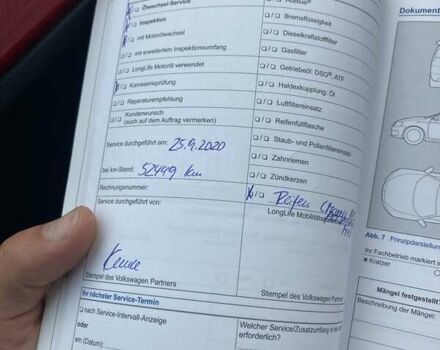 Ölwechsel-Service
Inspektion
mit Motorölwechsel
mit erweitertem Inspektionsumfang
LongLife Motoröl verwendet
Karosserieprüfung
Reparaturempfehlung
Kundenwunsch
(auch auf dem Auftrag vermerken)
Service durchgeführt am: 25.9.2020
bei km-Stand: 52449 km
Rechnungsnummer:
Service durchgeführt von:
Stempel des Volkswagen Partners
AdBlue®
Bremsflüssigkeit
Dieselkraftstofffilter
Gasfilter
Getriebeöl: DSG®, ATF
Haldexkupplung: Öl
Luftfiltereinsatz
Reifenfülltasche
Staub- und Pollenfiltereinsatz
Zahnriemen
Zündkerzen
Reifen
LongLife
Stempel des Volkswagen Partners
Ihr nächster Service-Termin
nach Service-Intervall-Anzeige
oder
am (Datum):
Welcher Service/Zusatzumfang ist
erforderlich?
Dokument
Abb. 7 Prinzipdarstellung
Ihr Fachbetrieb markiert
x Kratzer
Mängel festgestellt?
Beschreibung der Mängel: